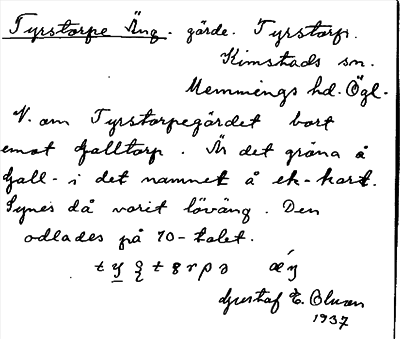 Tyrstorpe Äng. gärde. Tyrstorp.
Kimstads sn.
Memmings hd. Ögl.
V. om Tyrstorpegärdet bort
emot Galltorp. Är det gröna å
Gall- i det namnet å ek-kart.
Synes då varit löväng. Den
odlades på 70-talet.
Gustaf E. Olsson
1937